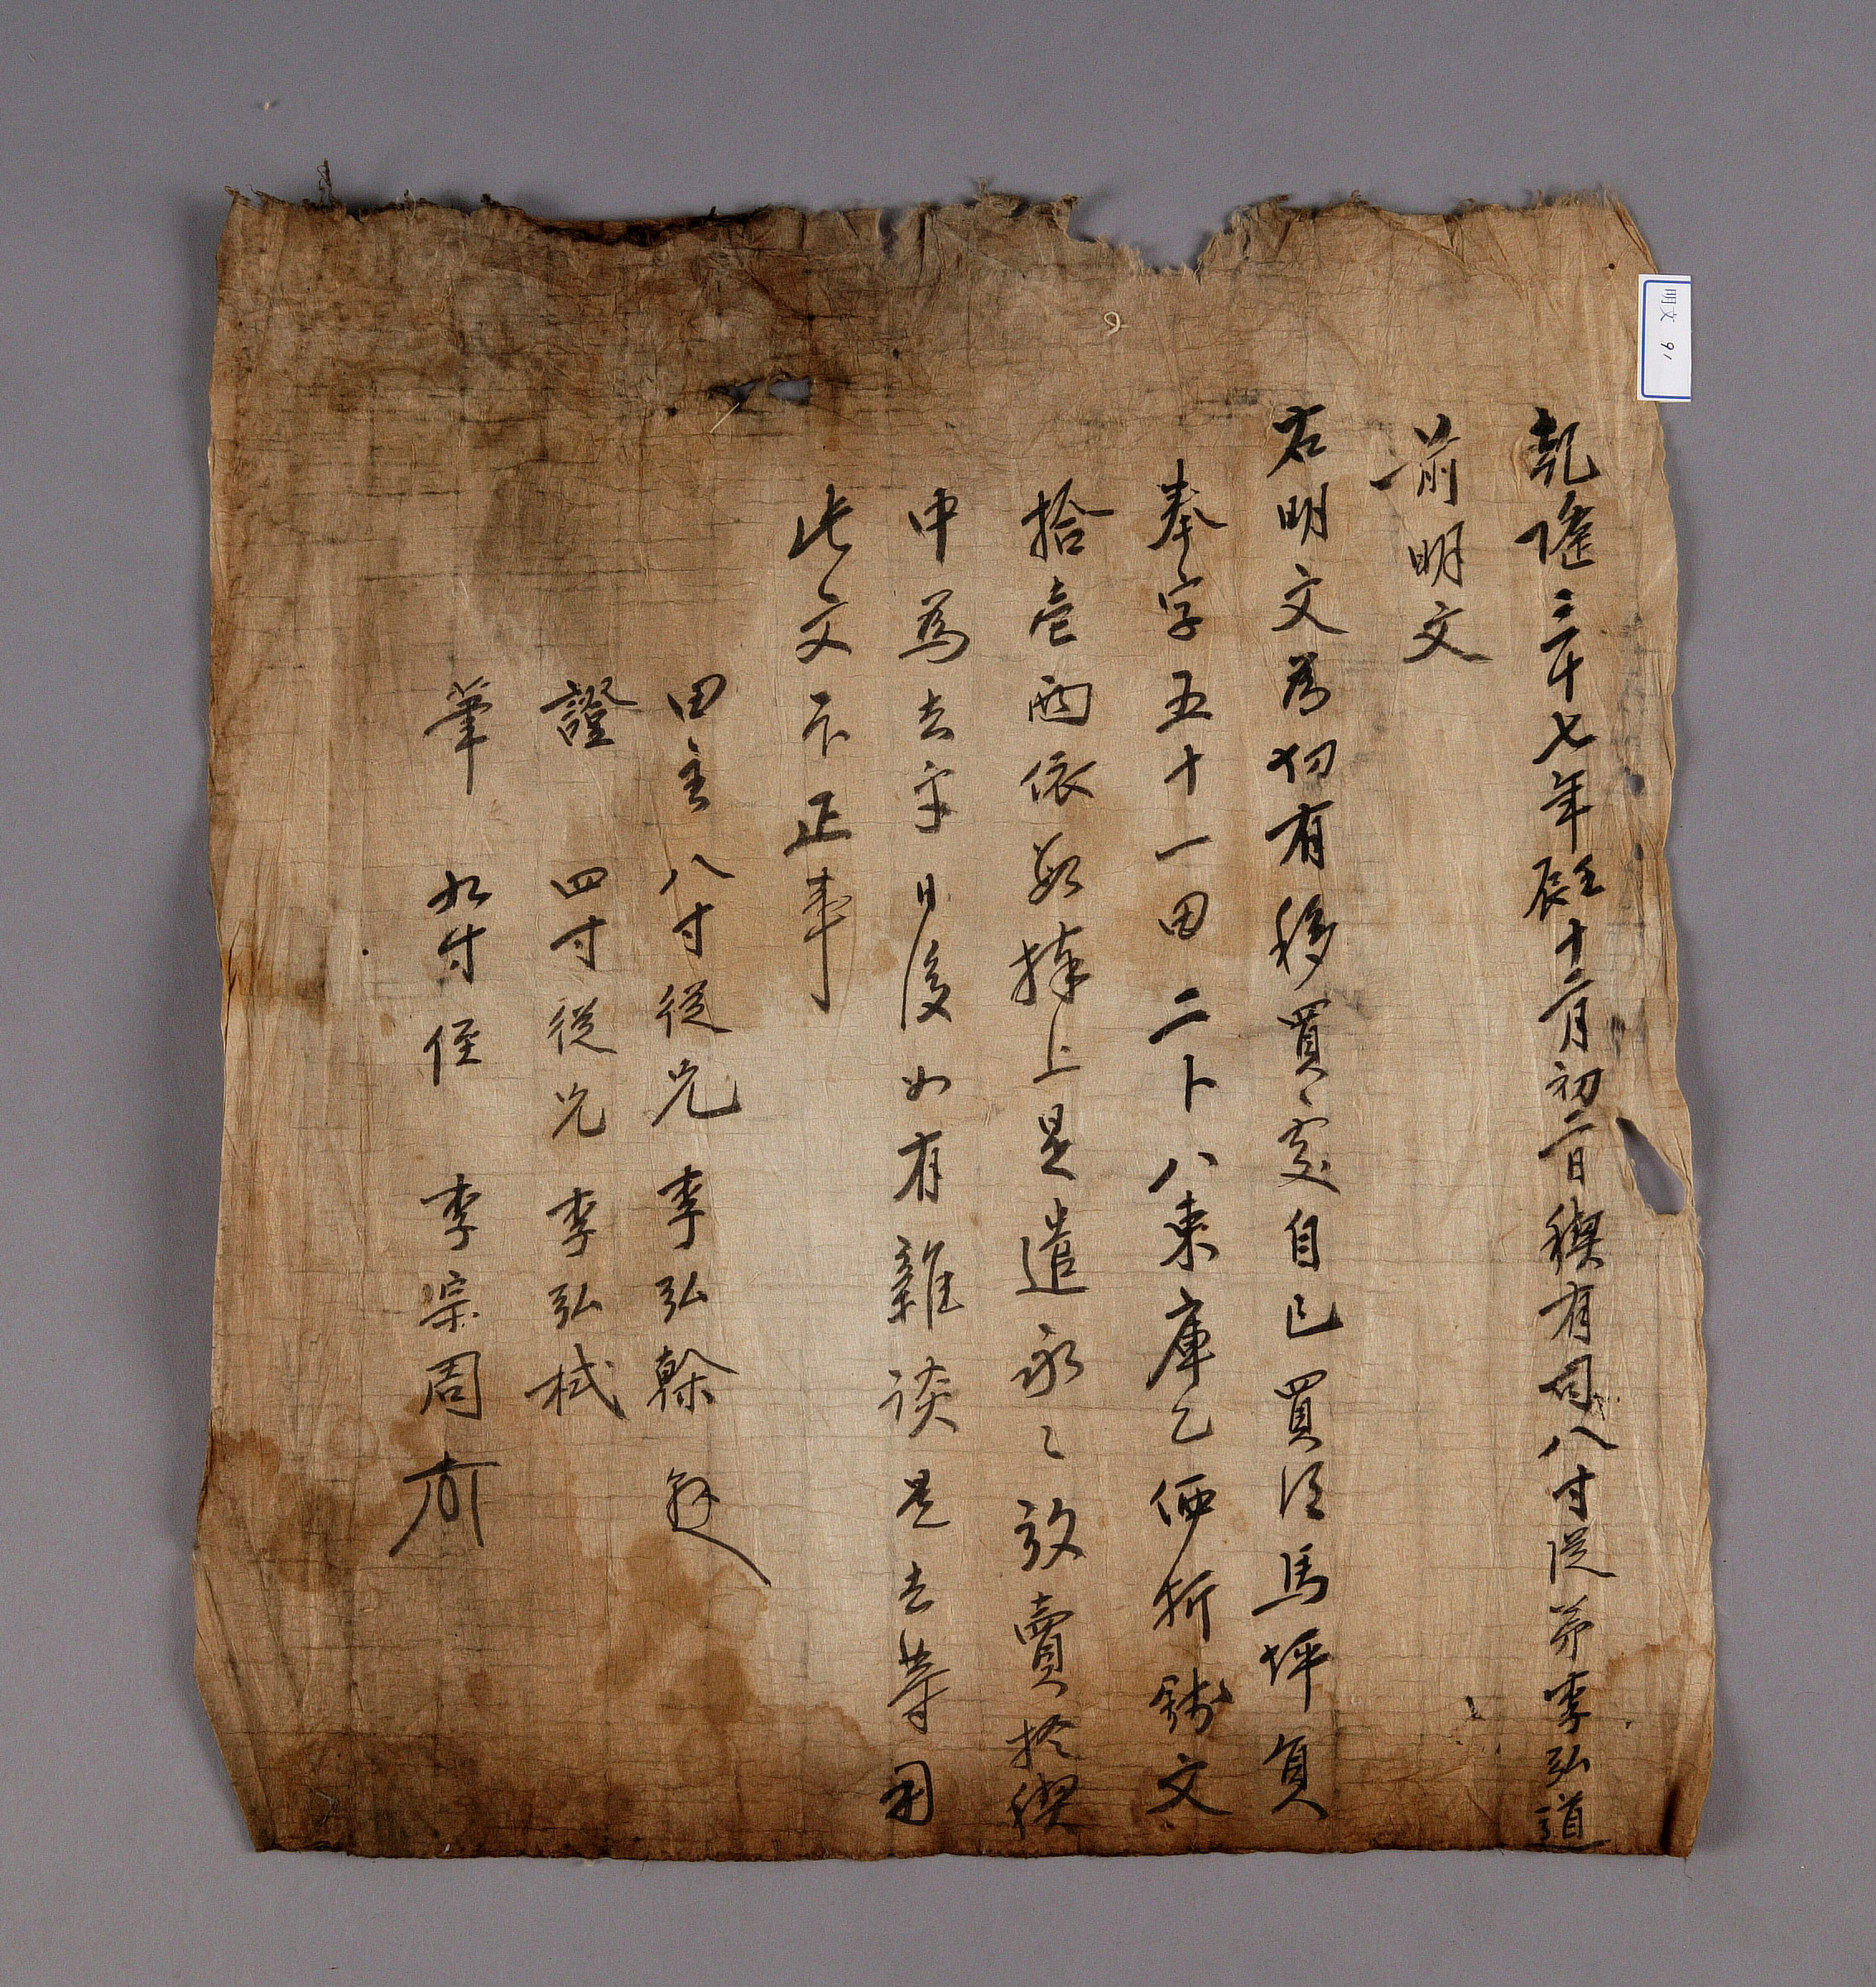 乾隆三十七年壬辰十二月初二日稧有司八寸從弟李弘道
前明文
右明文爲切有移買處自己買得馬坪員
奉字五十一田二卜八束庫乙価折錢文
拾壹兩依數捧上是遣永〻放賣於稧
中爲去乎日後如有雜談是去等用
此文卞正事
田主八寸從兄李弘榦
證 四寸從兄李弘栻
筆 九寸侄 李宗周
明文 91